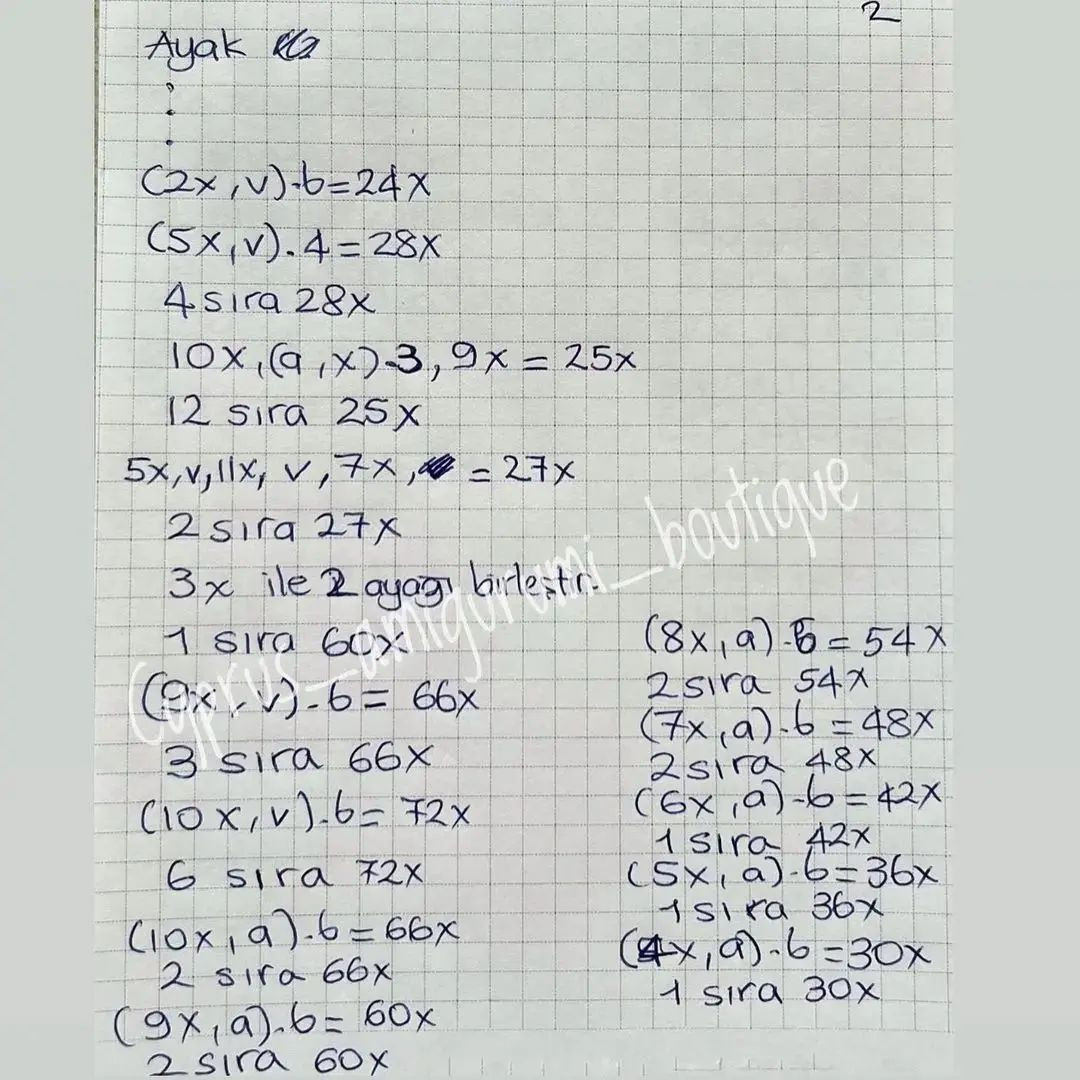 2
Ayak
(2x, v).6=24x
(5x, v).4=28x
4 sıra 28x
10x, (a, x).3, 9x = 25x
12 sıra 25x
5x, v, 11x, v, 7x, = 27x
2 sıra 27x
3x ile 2 ayağı birleştir.
1 sıra 60x
(9x, v).6= 66x
3 sıra 66x
(10x, v).6= 72x
6 sıra 72x
(10x, a).6=66x
2 sıra 66x
(9x, a).6= 60x
2 sıra 60x
(8x, a).6=54x
2 sıra 54x
(7x, a).6=48x
2 sıra 48x
(6x, a).6=42x
1 sıra 42x
(5x, a).6=36x
1 sıra 36x
(4x, a).6=30x
1 sıra 30x
Cyprus_amigurumi_boutique